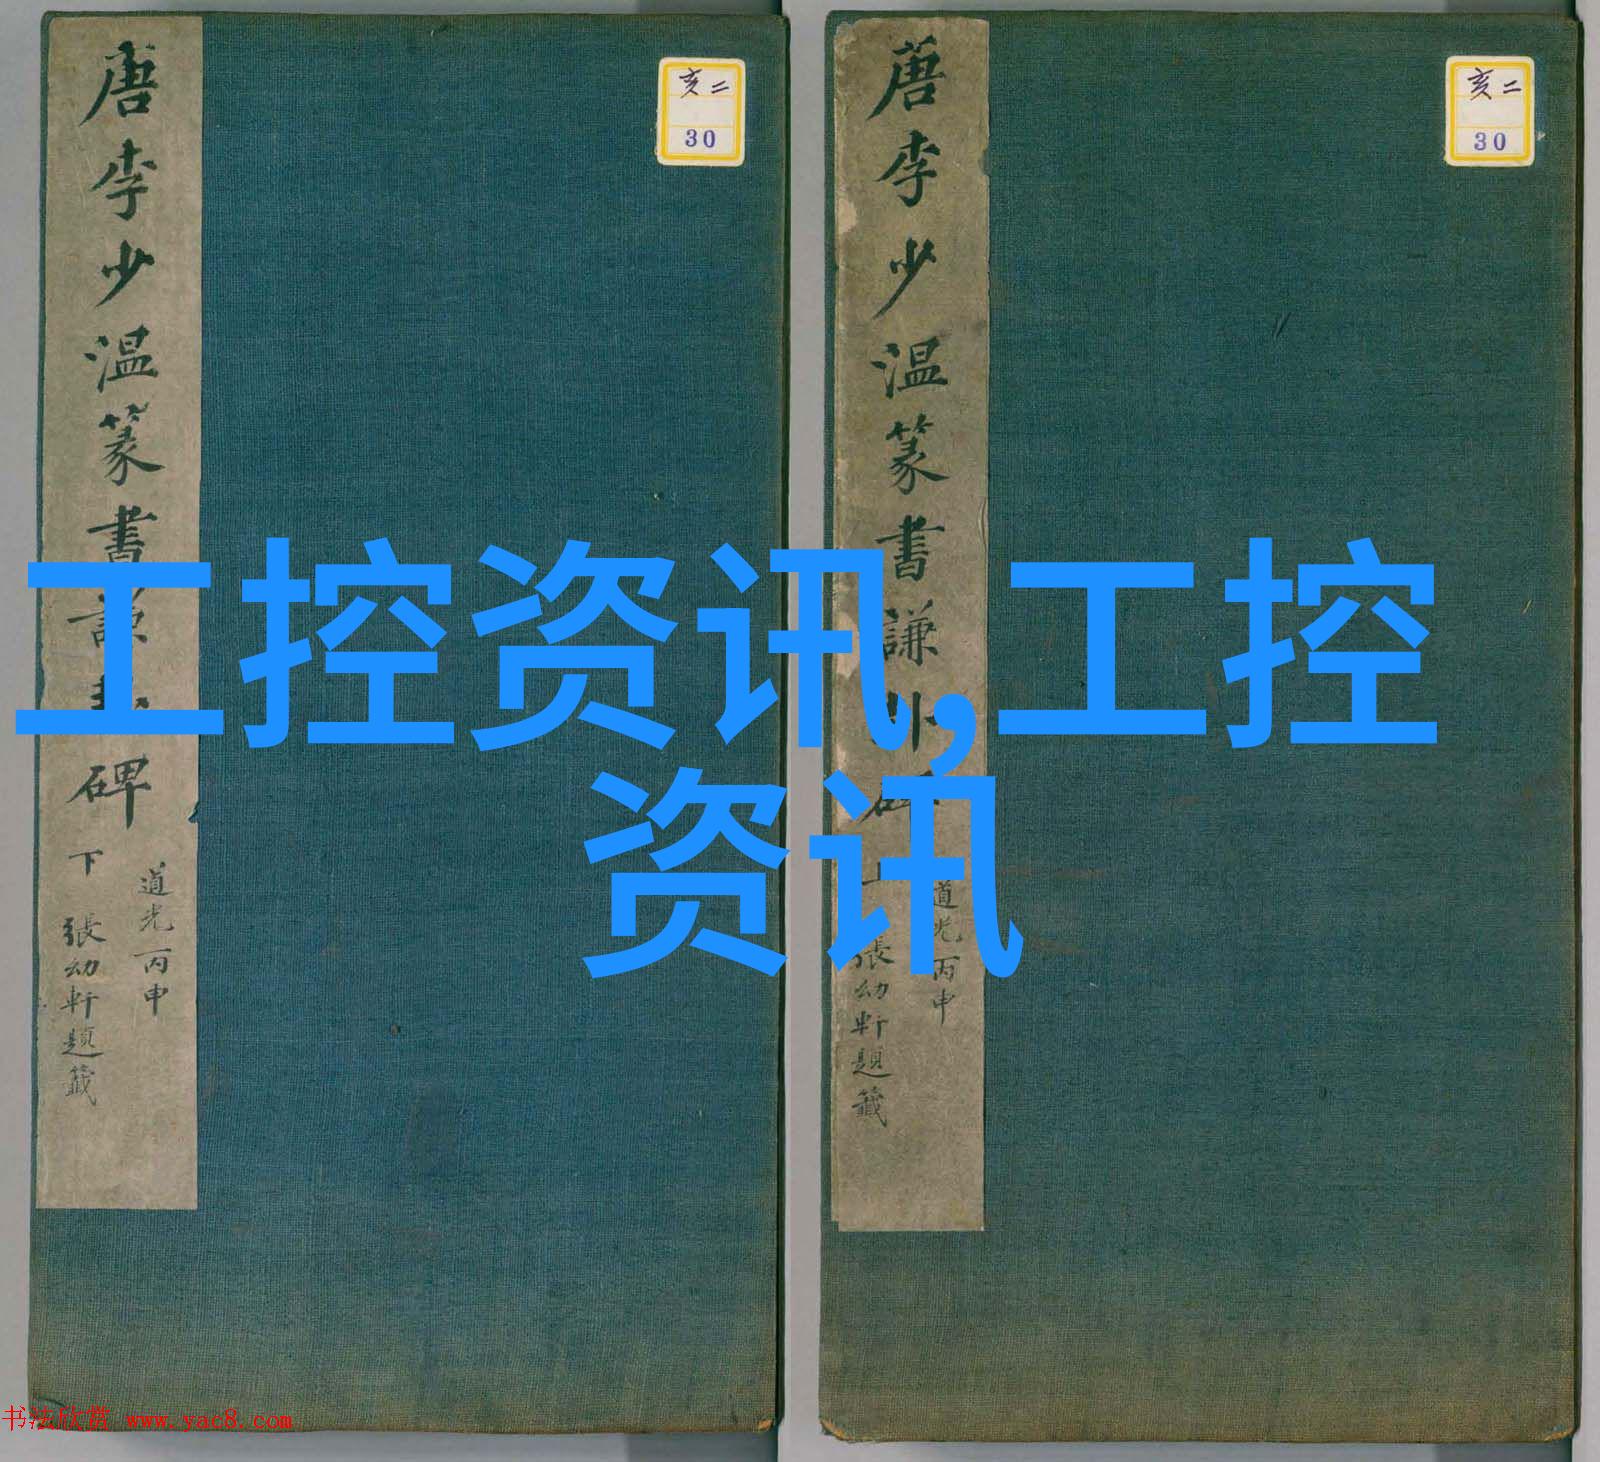 唐李少温篆書謙卦碑
上
道光丙申
張幼軒題籤
亥二
30
唐李少温篆書謙
碑
下
道光丙申
張幼軒題籤
亥二
30
工控资讯,工控
资讯
书法欣赏 www.yac8.com